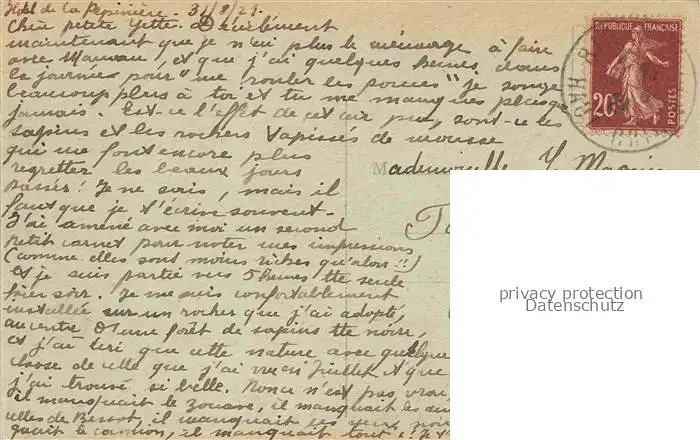 Hôtel de la Pépinière - 31/8/27.
Chère petite Yette. Décidément
maintenant que je n'ai plus le ménage à faire
avec Maman, et que j'ai quelques heures dans
la journée pour "me rouler les pouces" je songe
beaucoup plus à toi et tu me manques plus que
jamais. Est-ce l'effet de cet air pur, sont-ce les
sapins et les rochers tapissés de mousse
qui me font encore plus
regretter les beaux jours
passés! Je ne sais, mais il
faut que je t'écrive souvent.
J'ai amené avec moi un second
petit carnet pour noter mes impressions
(comme elles sont moins riches qu'alors!!)
et je suis partie vers 5 heures tte seule
hier soir. Je me suis confortablement
installée sur un rocher que j'ai adopté,
au centre d'une forêt de sapins tte noire,
et j'ai que cette nature avec quelque
chose de celle que j'ai vue en Juillet et que
j'ai trouvé si belle. Nenni n'est pas vrai,
il manquait le zouave, il manquait les
celles de il manquait les yeux
quait le camion, il manquait tout!! Je t'
Mademoiselle Y.
RÉPUBLIQUE FRANÇAISE
20c
POSTES
privacy protection
Datenschutz